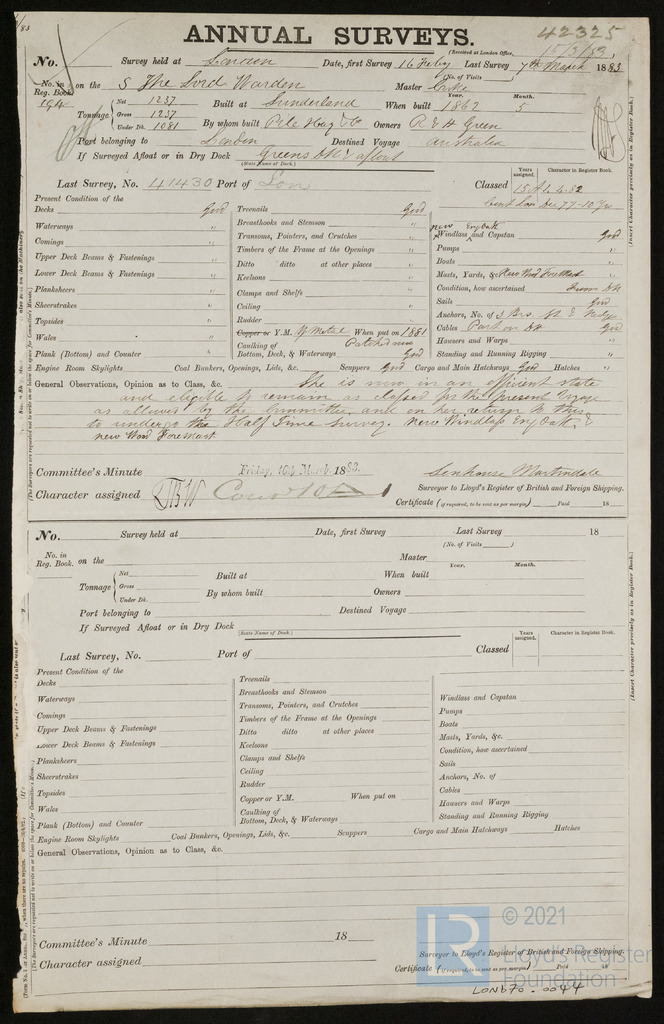 ANNUAL SURVEYS.
42325
(Received at London Office, 15/3/83)
No. Survey held at London Date, first Survey 16 Feby Last Survey 7th March 1883
(No. of Visits)
No. in Reg. Book. 194 on the S The Lord Warden Master
Tonnage Net 1237 Built at Sunderland When built Year. 1862 Month. 5
Gross 1237
Under Dk. 1081 By whom built Pile Hay & Co Owners R & H Green
Port belonging to London Destined Voyage Australia
If Surveyed Afloat or in Dry Dock Greens DK & afloat
(State Name of Dock.)
Last Survey, No. 41430 Port of Lon Classed Years assigned. Character in Register Book.
15 A1. 4.82
Present Condition of the
Decks Good
Waterways "
Comings "
Upper Deck Beams & Fastenings "
Lower Deck Beams & Fastenings "
Planksheers "
Sheerstrakes "
Topsides "
Wales "
Plank (Bottom) and Counter "
Treenails Good
Breasthooks and Stemson "
Transoms, Pointers, and Crutches "
Timbers of the Frame at the Openings "
Ditto ditto at other places "
Keelsons "
Clamps and Shelfs "
Ceiling "
Rudder "
Copper or Y.M. Y Metal When put on 1881
Caulking of Bottom, Deck, & Waterways Patched now Good
new Eng Oak
Windlass and Capstan Good
Pumps "
Boats "
Masts, Yards, &c. New Wood Foremast
Condition, how ascertained From DK
Sails Good
Anchors, No. of 3 Brs. St. & Kdg
Cables Part on DK Good
Hawsers and Warps "
Standing and Running Rigging "
Engine Room Skylights Coal Bunkers, Openings, Lids, &c. Scuppers Good Cargo and Main Hatchways Good Hatches "
General Observations, Opinion as to Class, &c. She is now in an efficient state
and eligible to remain as classed for the present Voyage
as allowed by the Committee, and on her return to this
to undergo the Half Time Survey. New Windlass Eng Oak, &
new Wood Foremast
Committee's Minute Friday, 16th March 1883. Senhouse Martindale
Character assigned Surveyor to Lloyd's Register of British and Foreign Shipping.
Certificate (if required, to be sent as per margin) Paid 18
No. Survey held at Date, first Survey Last Survey 18
(No. of Visits )
No. in Reg. Book. on the Master
Tonnage Net Built at When built Year. Month.
Gross
Under Dk. By whom built Owners
Port belonging to Destined Voyage
If Surveyed Afloat or in Dry Dock
(State Name of Dock.)
Last Survey, No. Port of Classed Years assigned. Character in Register Book.
Present Condition of the
Decks
Waterways
Comings
Upper Deck Beams & Fastenings
Lower Deck Beams & Fastenings
Planksheers
Sheerstrakes
Topsides
Wales
Plank (Bottom) and Counter
Treenails
Breasthooks and Stemson
Transoms, Pointers, and Crutches
Timbers of the Frame at the Openings
Ditto ditto at other places
Keelsons
Clamps and Shelfs
Ceiling
Rudder
Copper or Y.M. When put on
Caulking of Bottom, Deck, & Waterways
Windlass and Capstan
Pumps
Boats
Masts, Yards, &c.
Condition, how ascertained
Sails
Anchors, No. of
Cables
Hawsers and Warps
Standing and Running Rigging
Engine Room Skylights Coal Bunkers, Openings, Lids, &c. Scuppers Cargo and Main Hatchways Hatches
General Observations, Opinion as to Class, &c.
Committee's Minute 18
Character assigned Surveyor to Lloyd's Register of British and Foreign Shipping.
Certificate (if required, to be sent as per margin) Paid 18
(Insert Character precisely as in Register Book.)
(Insert Character precisely as in Register Book.)
(The Surveyors are requested not to write on or below the space for Committee's Minute.)
(The Surveyors are requested not to write on or below the space for Committee's Minute.)
LR © 2021
Lloyd's Register
Foundation
LON670-0044